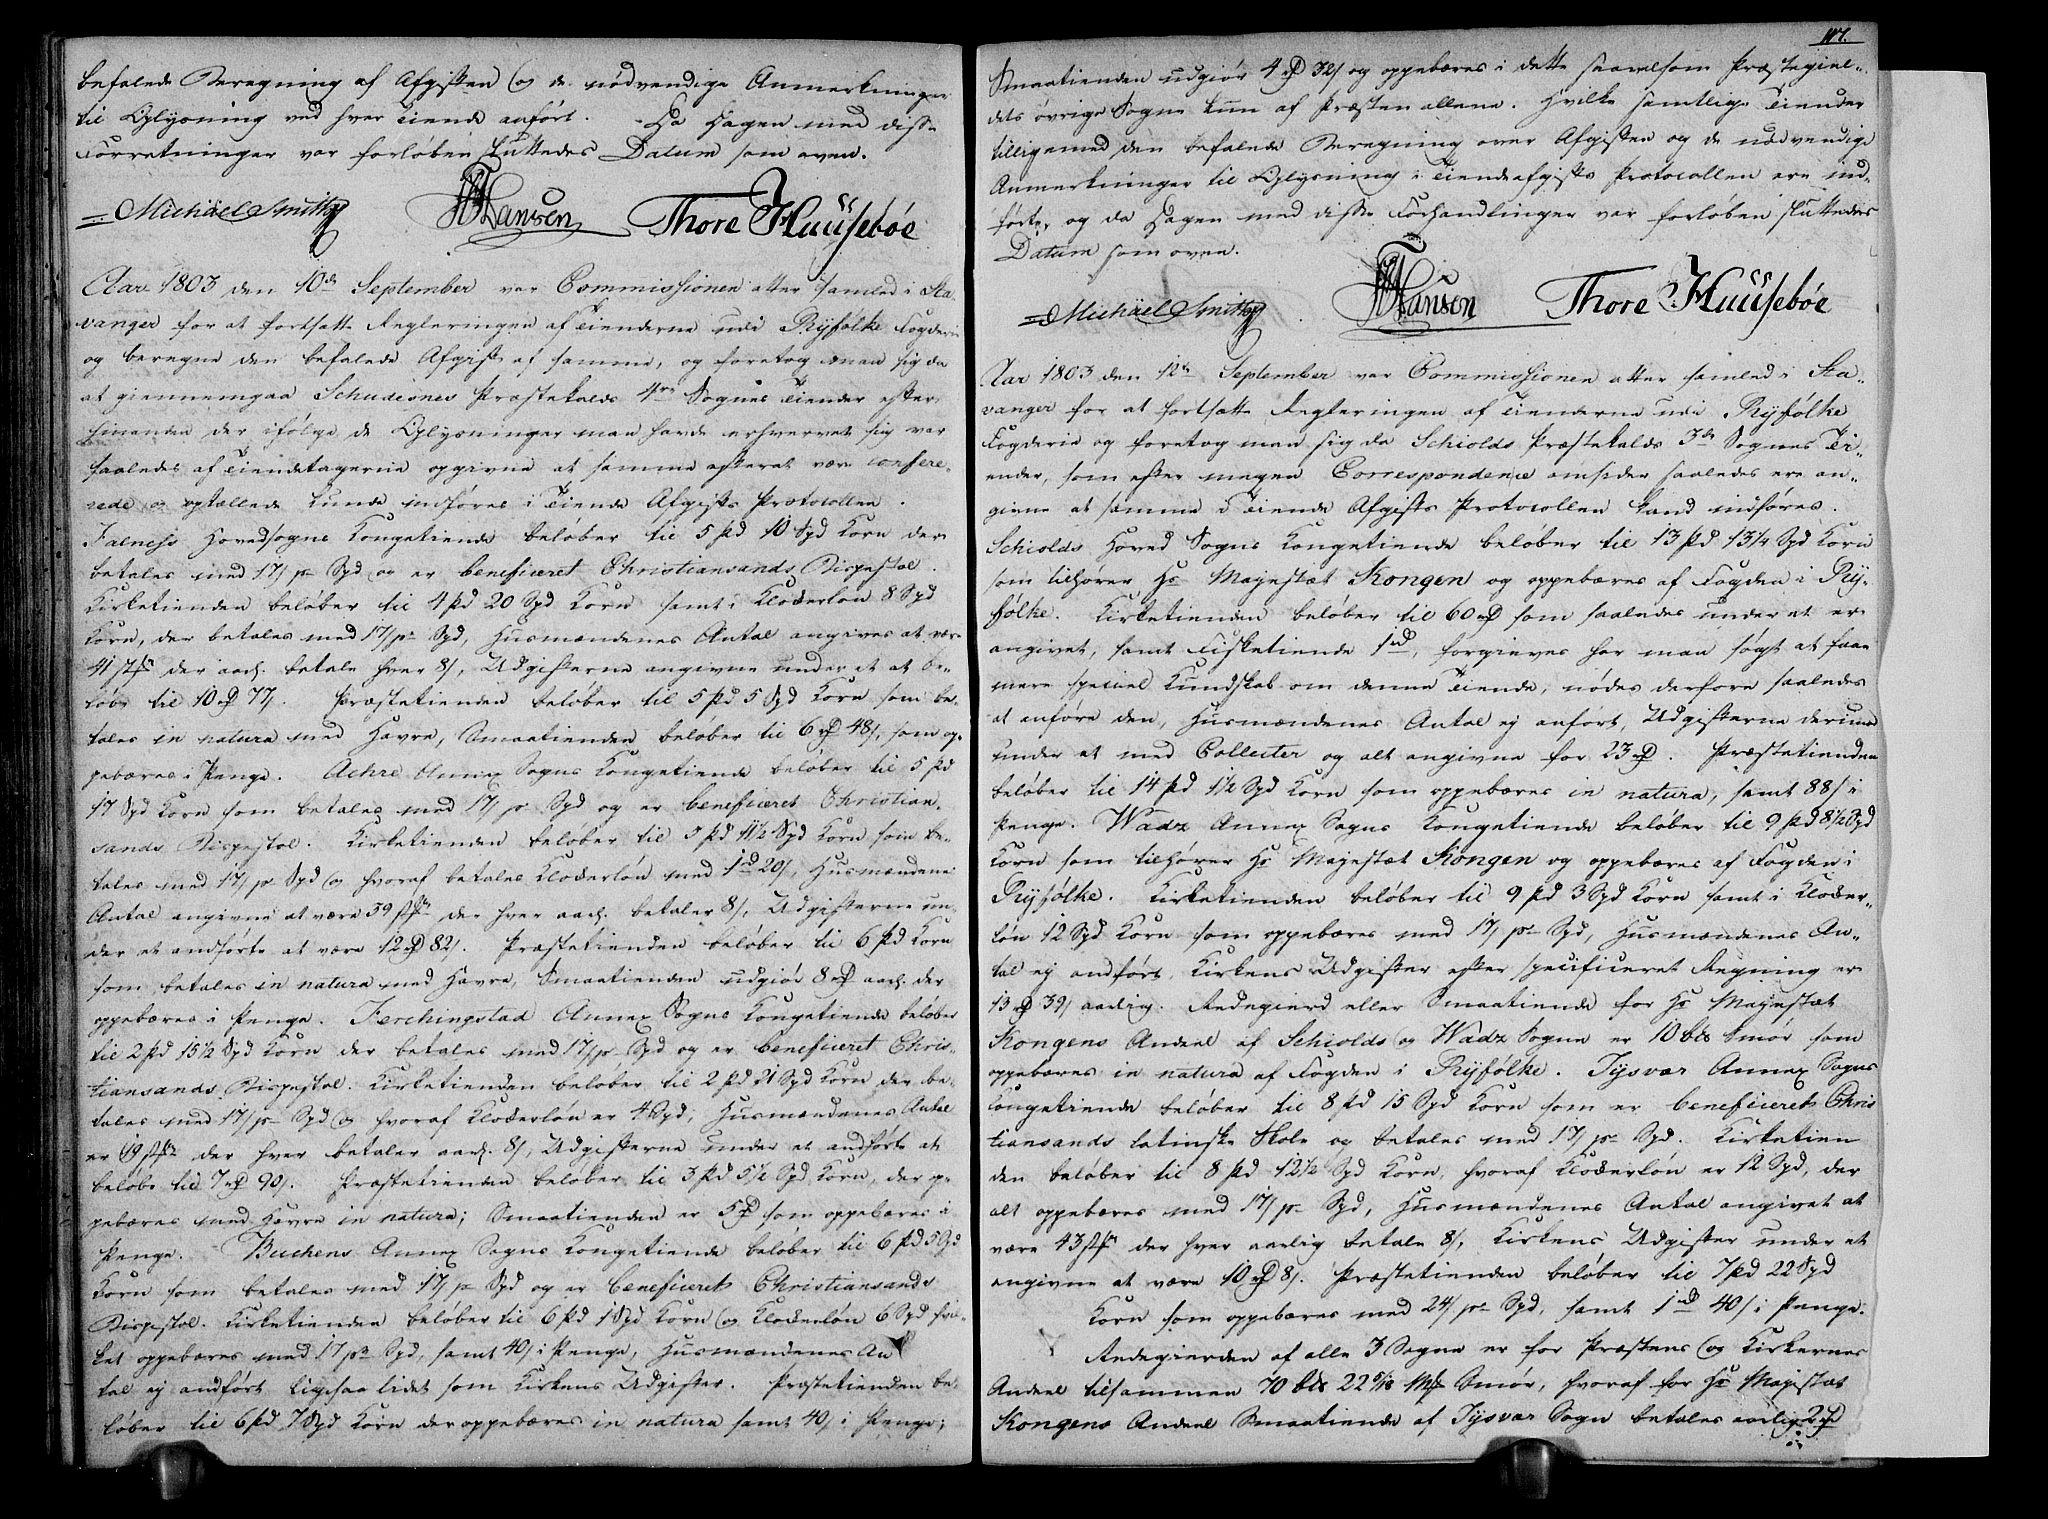 befalede Beregning af Afgiften og de nødvendige Anmerkninger
til Oplysning ved hver Tiende anført. Da Dagen med disse
Forretninger var forløben sluttedes Datum som oven.
Michäel Smith Hansen Thore Huusebøe
Aar 1803 den 10de September var Commissionen atter samled i Sta-
vanger for at fortsætte Regleringen af Tienderne udi Ryfølke Fogderie
og beregne den befalede Afgift af samme, og foretog man sig da
at giennemgaae Schudesnes Præstekalds 4re Sognes Tiender efter
hinanden der ifølge de Oplysninger man havde erhvervet sig var
saaledes af Tiendetagerne opgivne at samme efterat være confere-
rede og optællede kunde indføres i Tiende Afgifts Protocollen.
Falness Hovedsogns Kongetiende beløber til 5 pd 10 Spd Korn der
betales med 17/ pr Spd og er beneficeret Christiansands Bispestol.
Kirketienden beløber til 4 pd 20 Spd Korn samt i Klokkerløn 8 Spd
Korn, der betales med 17/ pr Spd, Husmændenes Antal angives at være
41 stkr der aarl. betale hver 8/, Udgifterne angivne under et at be-
løbe til 10 rd 77/. Præstetienden beløber til 5 pd 5 Spd Korn som be-
tales in natura med Havre, Smaatienden beløber til 6 rd 48/, som op-
pebæres i Penge. Achre Annex Sogns Kongetiende beløber til 5 pd
17 Spd Korn som betales med 17/ pr Spd og er beneficeret Christian-
sands Bispestol. Kirketienden beløber til 5 pd 11½ Spd Korn som be-
tales med 17/ pr Spd og hvoraf betales Klokkerløn med 1 rd 20/, Husmændenes
Antal angivne at være 39 stkr der hver aarl. betaler 8/, Udgifterne un-
der et andførte at være 12 rd 82/. Præstetienden beløber til 6 pd Korn
som betales in natura med Havre, Smaatienden udgiør 8 rd aarl. der
oppebæres i Penge. Ferchingstad Annex Sogns Kongetiende beløber
til 2 pd 15½ Spd Korn der betales med 17/ pr Spd og er beneficeret Chris-
tiansands Bispestol. Kirketienden beløber til 2 pd 21 Spd Korn der be-
tales med 17/ pr Spd og hvoraf Klokkerløn er 4 Spd, Husmændenes Antal
er 19 stkr der hver betaler aarl. 8/, Udgifterne under et andførte at
beløbe til 7 rd 90/. Præstetienden beløber til 3 pd 5½ Spd Korn, der op-
pebæres med Havre in natura; Smaatienden er 5 rd som oppebæres i
Penge. Buchens Annex Sogns Kongetiende beløber til 6 pd 5 Spd
Korn som betales med 17/ pr Spd og er beneficeret Christiansands
Bispestol. Kirketienden beløber til 6 pd 1 Spd Korn og Klokkerløn 6 Spd hvil-
ket oppebæres med 17 pr Spd, samt 40/ i Penge, Husmændenes An
tal ej andført ligesaalidet som Kirkens Udgifter. Præstetienden be-
løber til 6 pd 7 Spd Korn der oppebæres in natura samt 40/ i Penge;
117.
Smaatienden udgiør 4 rd 32/ og oppebæres i dette saavelsom Præstegiel-
dets øvrige Sogne kun af Præsten allene. Hvilke samtlige Tiender
tilligemed den befalede Beregning over Afgiften og de nødvendige
Anmerkninger til Oplysning i Tiendeafgifts Protocollen ere ind-
førte, og da Dagen med disse Forhandlinger var forløben sluttedes
Datum som oven.
Michäel Smith Hansen Thore Huusebøe
Aar 1803 den 12te September var Commissionen atter samled i Sta-
vanger for at fortsætte Regleringen af Tienderne udi Ryfølke
Fogderie og foretog man sig da Schiolds Præstekalds 3de Sognes Ti-
ender, som efter megen Correspondence omsider saaledes ere an-
givne at samme i Tiende Afgifts Protocollen kand indføres.
Schiolds Hoved Sogns Kongetiende beløber til 13 pd 13¼ Spd Korn
som tilhører Hs Majestæt Kongen og oppebæres af Fogden i Ryf-
følke. Kirketienden beløber til 60 rd som saaledes under et er
angivet, samt Fisketiende 1 rd, forgieves har man søgt at faae
mere speciel Kundskab om denne Tiende, nødes derfore saaledes
at anføre den, Husmændenes Antal ej anført, Udgifterne derimod
under et med Collecter og alt angivne for 23 rd. Præstetienden
beløber til 14 pd 1½ Spd Korn som oppebæres in natura, samt 88/ i
Penge. Wadz Annex Sogns Kongetiende beløber til 9 pd 8½ Spd
Korn som tilhører Hs Majestæt Kongen og oppebæres af Fogden i
Ryfølke. Kirketienden beløber til 9 pd 3 Spd Korn samt i Klokker-
løn 12 Spd Korn som oppebæres med 17/ pr Spd, Husmændenes An-
tal ej andført, Kirkens Udgifter efter specificeret Regning er
13 rd 39/ aarlig. Redegierd eller Smaatiende for Hs Majestæt
Kongens Andeel af Schiolds og Wadz Sogne er 10 bts Smør som
oppebæres in natura af Fogden i Ryfølke. Tysvær Annex Sogns
Kongetiende beløber til 8 pd 15 Spd Korn som er beneficeret Chris
tiansands latinske Skole og betales med 17/ pr Spd. Kirketien
den beløber til 8 pd 12½ Spd Korn, hvoraf Klokkerløn er 12 Spd, der
alt oppebæres med 17/ pr Spd, Husmændenes Antal angivet at
være 43 stkr der hver aarlig betale 8/, Kirkens Udgifter under et
angivne at være 10 rd 8/. Præstetienden beløber til 7 pd 22 Spd
Korn som oppebæres med 24/ pr Spd, samt 1 rd 40/ i Penge.
Redegierden af alle 3 Sogne er for Præstens og Kirkernes
Andeel tilsammen 70 bts 22 Mk Smør, hvoraf for Hs Majestæt
Kongens Andeel Smaatiende af Tysvær Sogn betales aarlig 2 rd